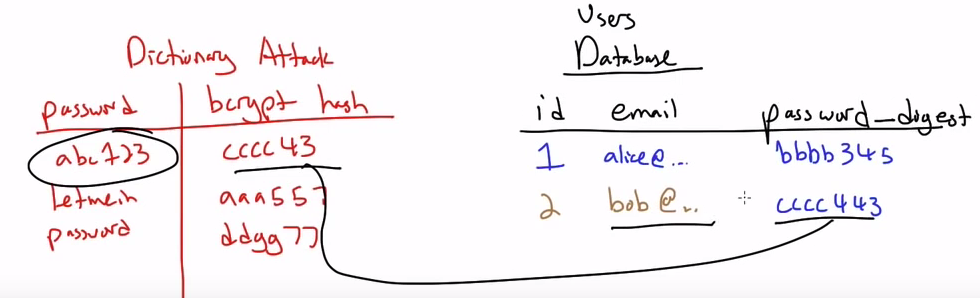 Dictionary Attack
password bcrypt hash
abc123 cccc43
letmein aaa557
password ddgg77
Users
Database
id email password_digest
1 alice@... bbbb345
2 bob@... cccc443